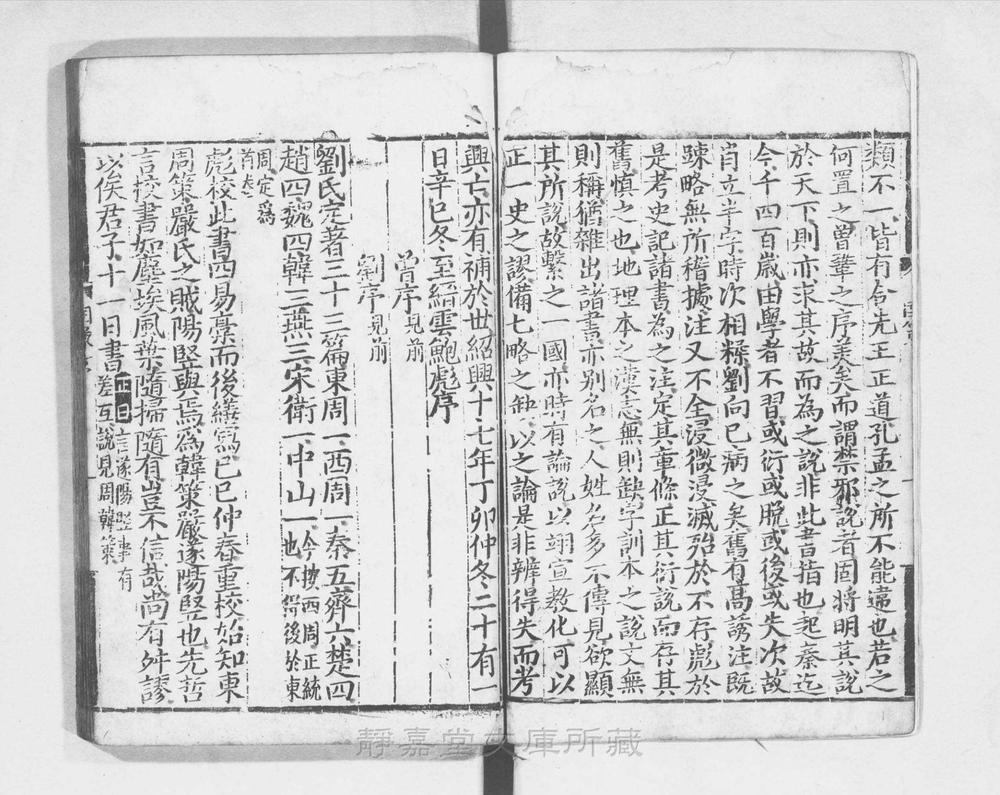 類不一皆有合先王正道孔孟之所不能違也若之
何置之曾鞏之序美矣而謂禁邪說者固將明其說
於天下則亦求其故而為之說非此書指也起秦迄
今千四百歲由學者不習或衍或脫或後或失次故
肖立半字時次相糅劉向已病之矣舊有高誘注既
踈略無所稽據注又不全浸微浸滅殆於不存彪於
是考史記諸書為之注定其章條正其衍說而存其
舊慎之也地理本之漢志無則缺字訓本之說文無
則稱猶雜出諸書亦别名之人姓名多不傳見欲顯
其所說故繫之一國亦時有論說以翊宣教化可以
正一史之謬備七略之缺以之論是非辨得失而考
興亡亦有補於世紹興十七年丁卯仲冬二十有一
日辛巳冬至縉雲鮑彪序
曾序見前
劉序見前
劉氏定著三十三篇東周一西周一秦五齊六楚四
趙四魏四韓三燕三宋衛一中山一今按西周正統
也不得後於東
周定爲
首卷
彪校此書四易藁而後繕寫已巳仲春重校始知東
周策嚴氏之賊陽竪與焉為韓策嚴遂陽竪也先哲
言校書如塵埃風葉隨掃隨有豈不信哉尚有舛謬
以俟君子十一日書正曰言遂陽竪事有
差互說見周韓策
静嘉堂文庫所藏